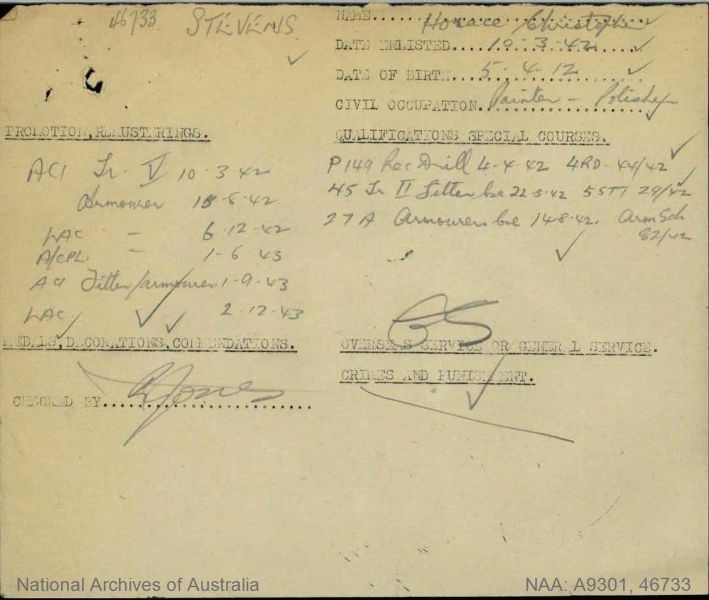 46733 STEVENS
NAME Horace Christopher
DATE ENLISTED....10.3.42
DATE OF BIRTH....5.4.12
CIVIL OCCUPATION. Painter - Polisher
PROMOTION, REMUSTERINGS.
AC1 Tr. V 10-3-42
Armourer 15-8-42
LAC - 6-12-42
A/CPL. - 1-6-43
AC1 Fitter/armourer 1-9-43
LAC 2-12-43
QUALIFICATIONS SPECIAL COURSES.
P149 Rec Drill 4-4-42 4RD 44/42
45 Tr II Fitter bse 22-5-42 5STT 29/42
27A Armourers Cse 14-8-42. Arm Sch
82/42
MEDALS, DECORATIONS, COMMENDATIONS.
CHECKED BY
GS
OVERSEAS SERVICE OR GENERAL SERVICE.
CRIMES AND PUNISHMENT.
National Archives of Australia
NAA: A9301, 46733